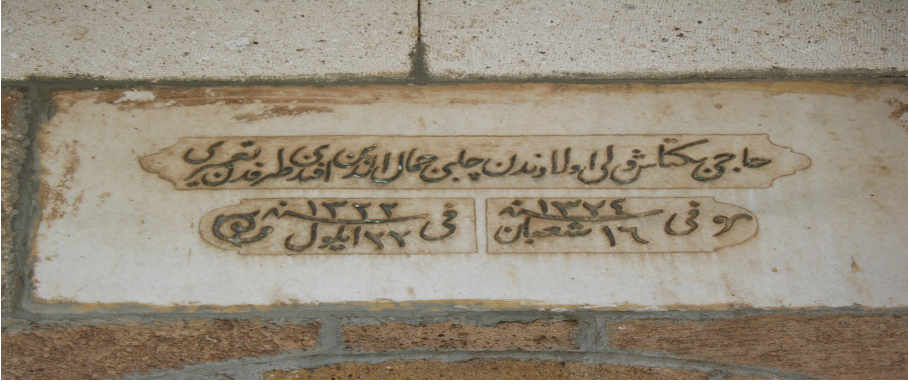 حاجی بكتاش ولی اولادندن چلبی جمال الدین افندی طرفندن تعمیری
فی ١٦ شعبان سنه ١٣٢٤ فی ٢٢ ایلول سنه ١٣٢٢